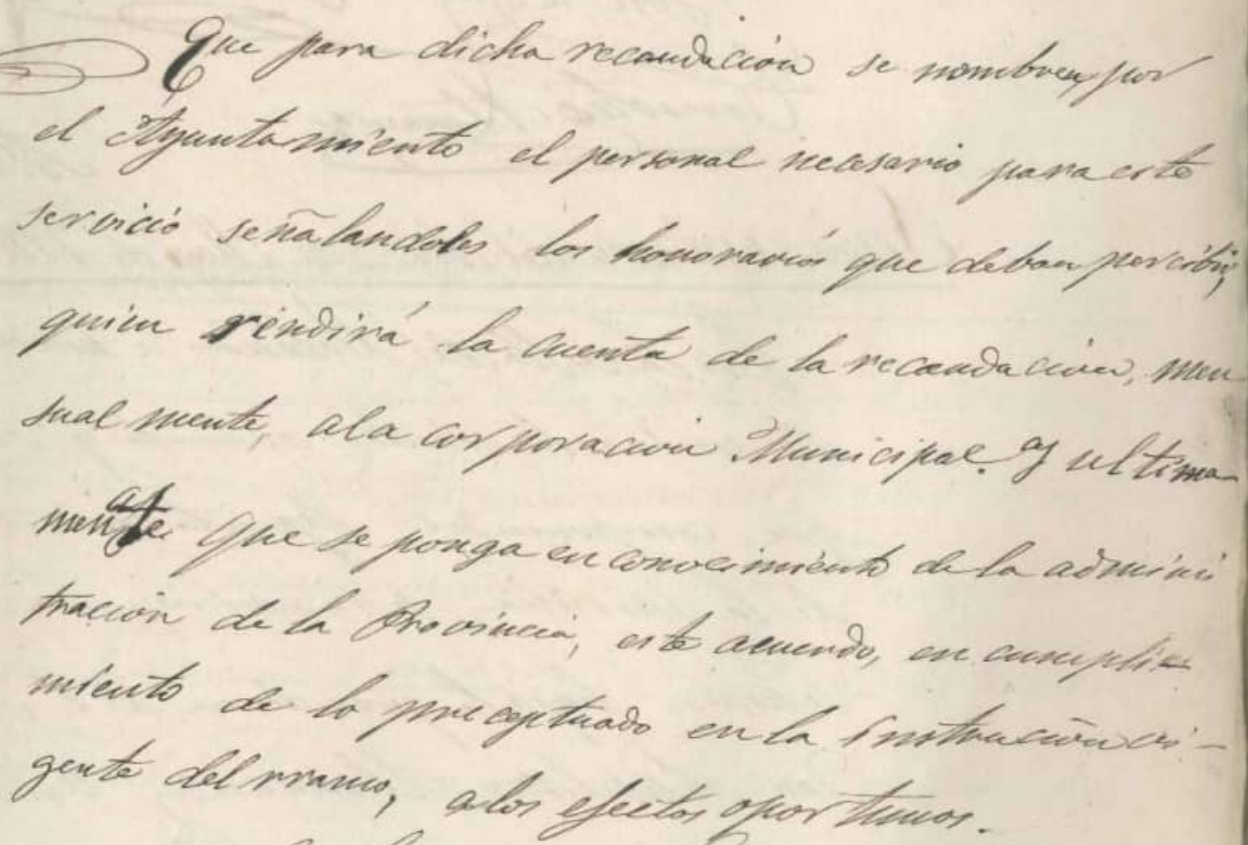 Que para dicha recaudación se nombren, por
el Ayuntamiento el personal necesario para este
servició señalandoles los honorarios que deban percibir,
quien rendirá la cuenta de la recaudacion, men
sual mente, ala corporacion Municipal. Y ultima
mente. Que se ponga en conocimiento de la adminis
tración de la Provincia, este acuerdo, en cumpli-
miento de lo preceptuado en la instrucción vi-
gente del rramo, a los efectos oportunos.